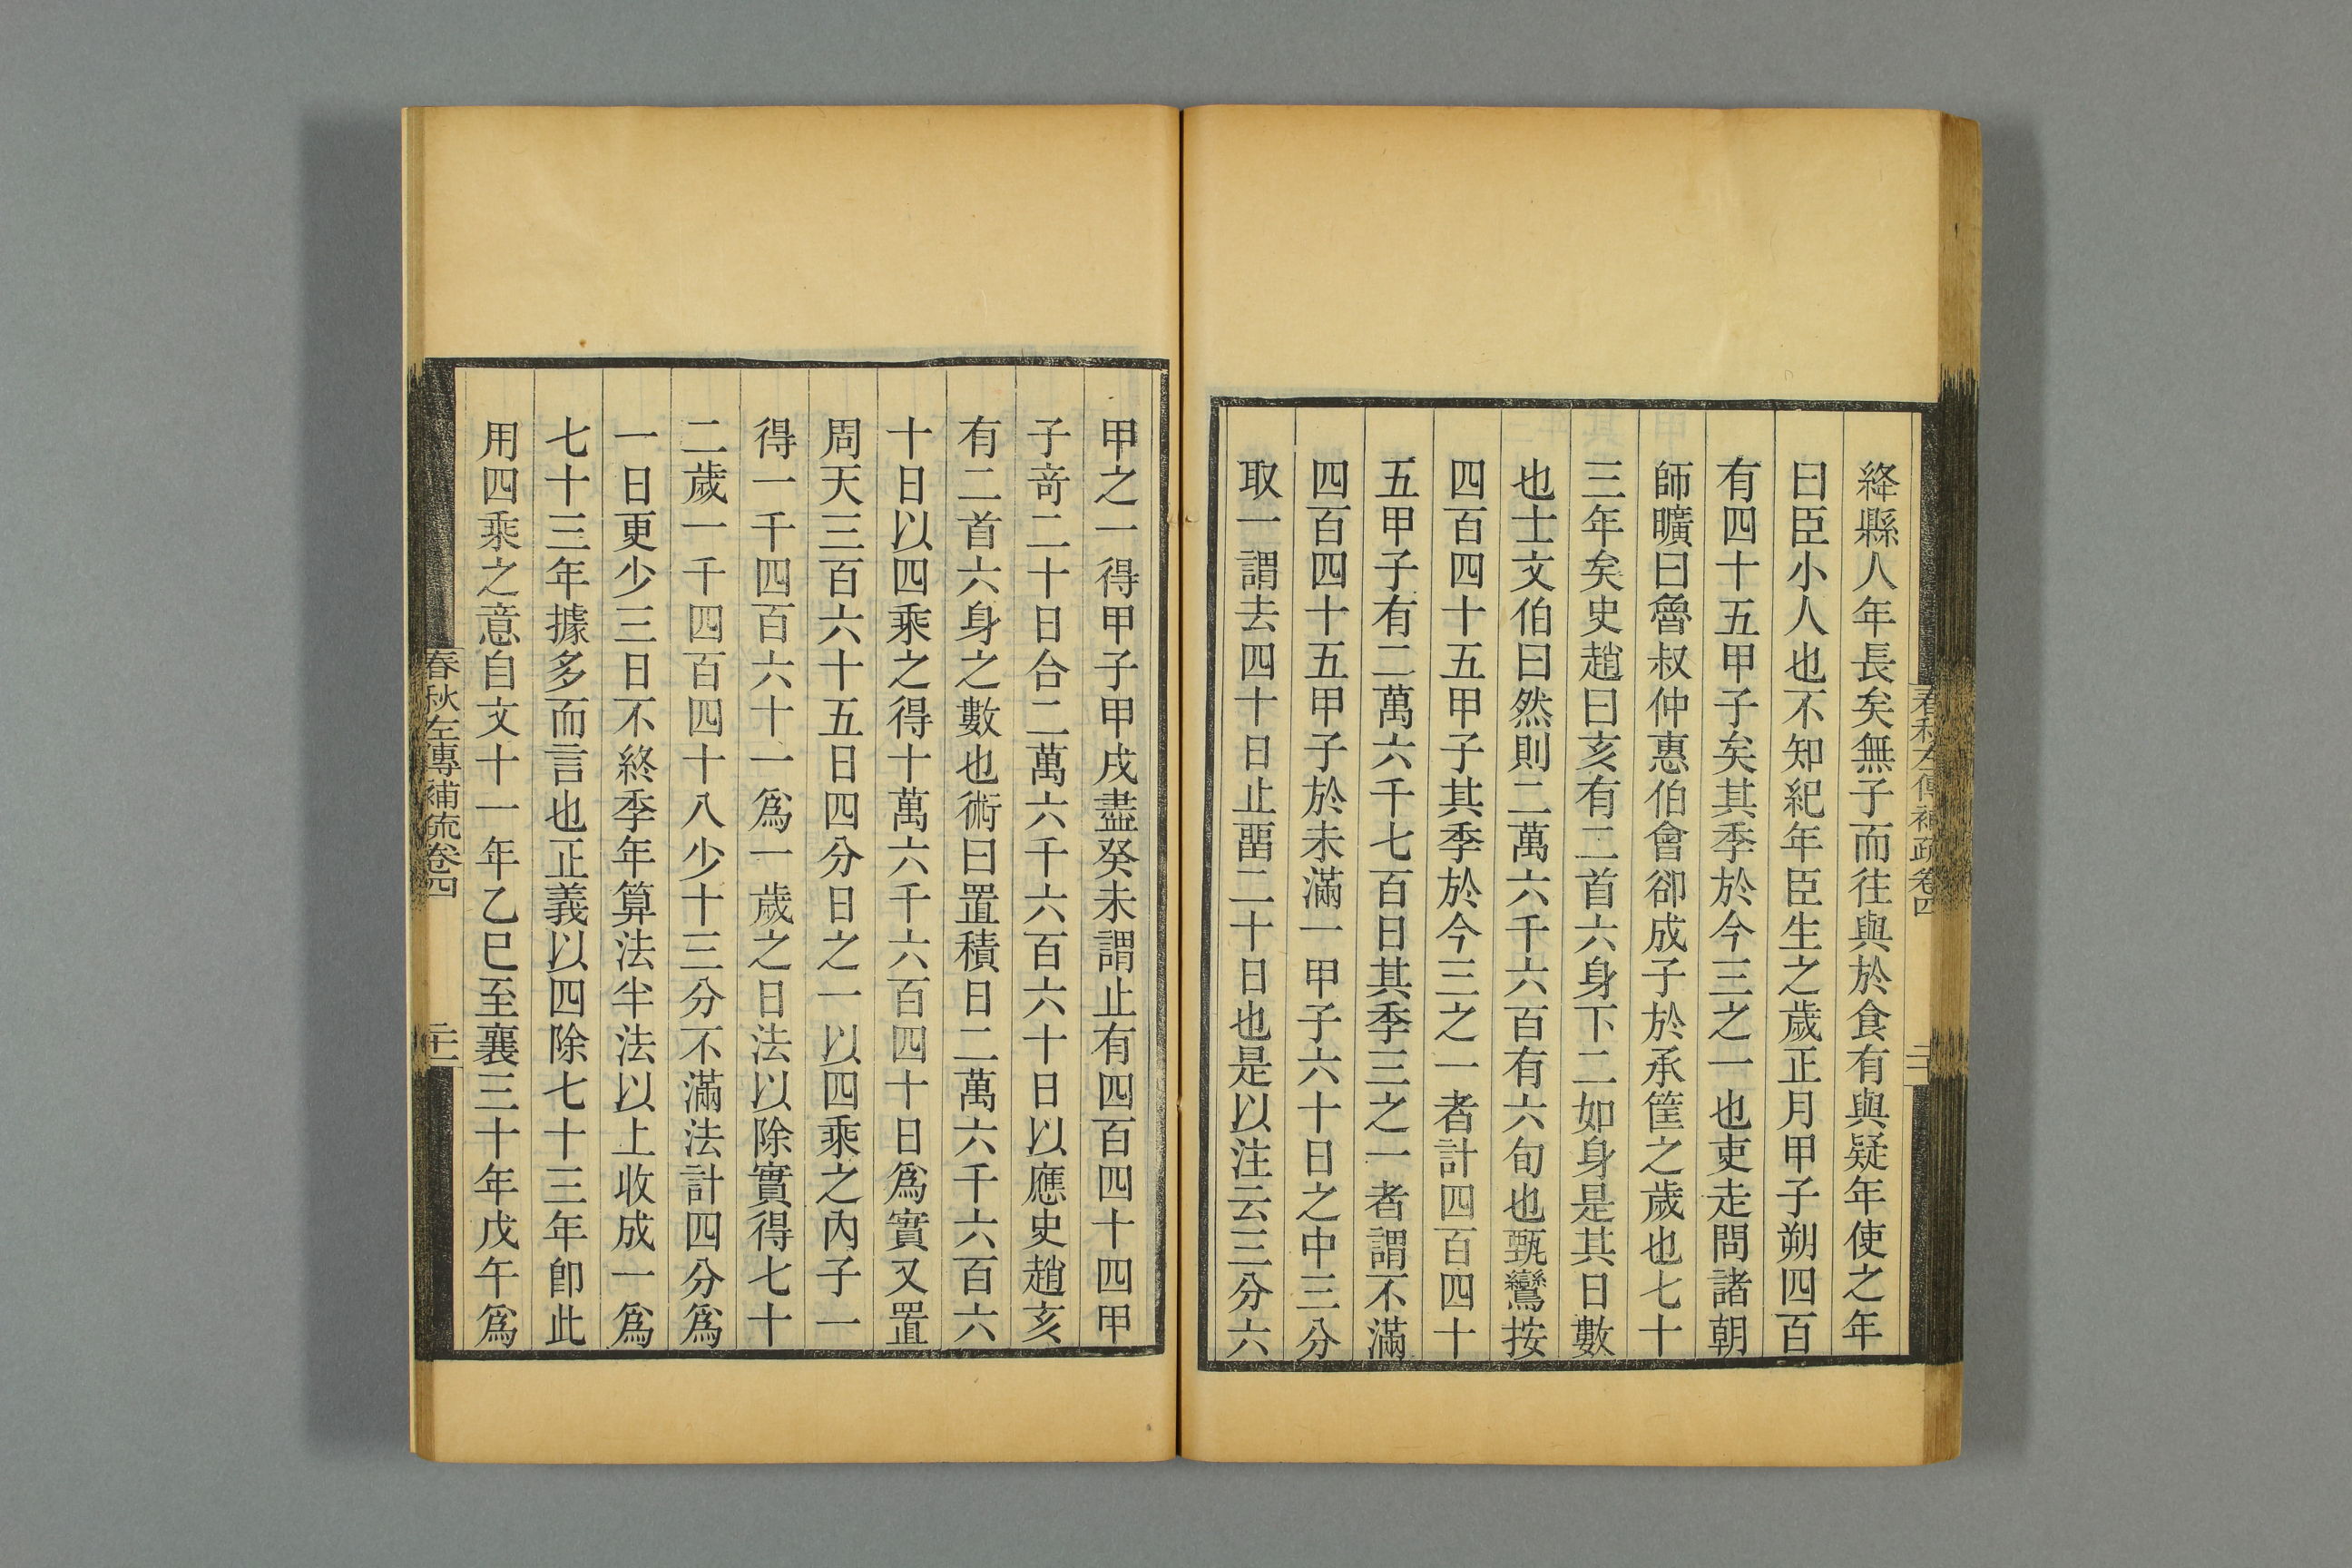 絳縣人年長矣無子而往與於食有與疑年使之年
曰臣小人也不知紀年臣生之歲正月甲子朔四百
有四十五甲子矣其季於今三之一也吏走問諸朝
師曠曰魯叔仲惠伯會卻成子於承筐之歲也七十
三年矣史趙曰亥有二首六身下二如身是其日數
也士文伯曰然則二萬六千六百有六旬也甄鸞按
四百四十五甲子其季於今三之一者計四百四十
五甲子有二萬六千七百日其季三之一者謂不滿
四百四十五甲子於未滿一甲子六十日之中三分
取一謂去四十日止畱二十日也是以注云三分六
春秋左傳補疏卷四
甲之一得甲子甲戌盡癸未謂止有四百四十四甲
子奇二十日合二萬六千六百六十日以應史趙亥
有二首六身之數也術曰置積日二萬六千六百六
十日以四乘之得十萬六千六百四十日爲實又置
周天三百六十五日四分日之一以四乘之內子一
得一千四百六十一爲一歲之日法以除實得七十
二歲一千四百四十八少十三分不滿法計四分爲
一日更少三日不終季年算法半法以上收成一爲
七十三年據多而言也正義以四除七十三年卽此
用四乘之意自文十一年乙巳至襄三十年戊午爲
春秋左傳補疏卷四
二十一